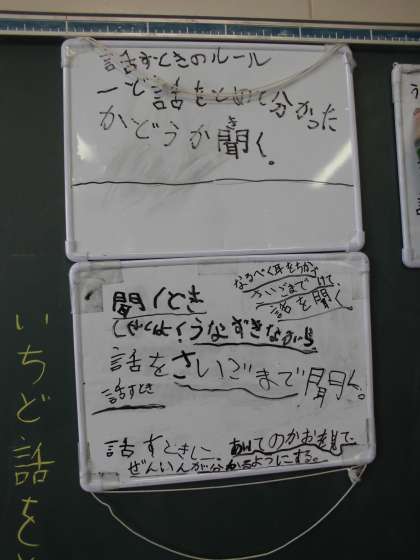 話すときのルール
一ど話をとめて分かった
かどうか聞く。
き
聞くとき
なるべく耳をちかづけて、
さいごまで
話を聞く。
うなずきながら
話をさいごまで聞く。
話すとき
話すときに、あいてのかおを見て、
ぜんいんが分かるようにする。
いちど話を